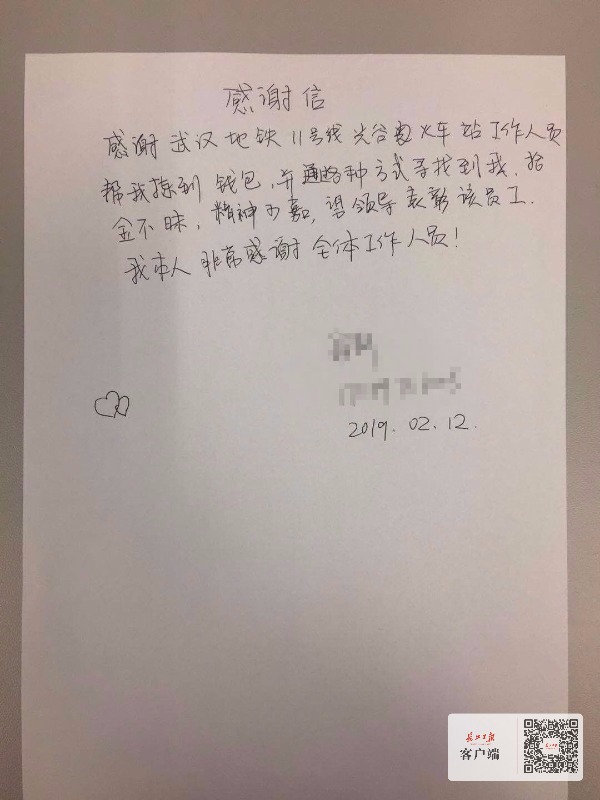 感谢信
感谢武汉地铁11号线光谷东火车站工作人员
帮我捡到钱包,并通各种方式寻找到我,拾
金不昧,精神可嘉,望领导表彰该员工.
我本人非常感谢全体工作人员!
2019.02.12.
长江日报
客户端